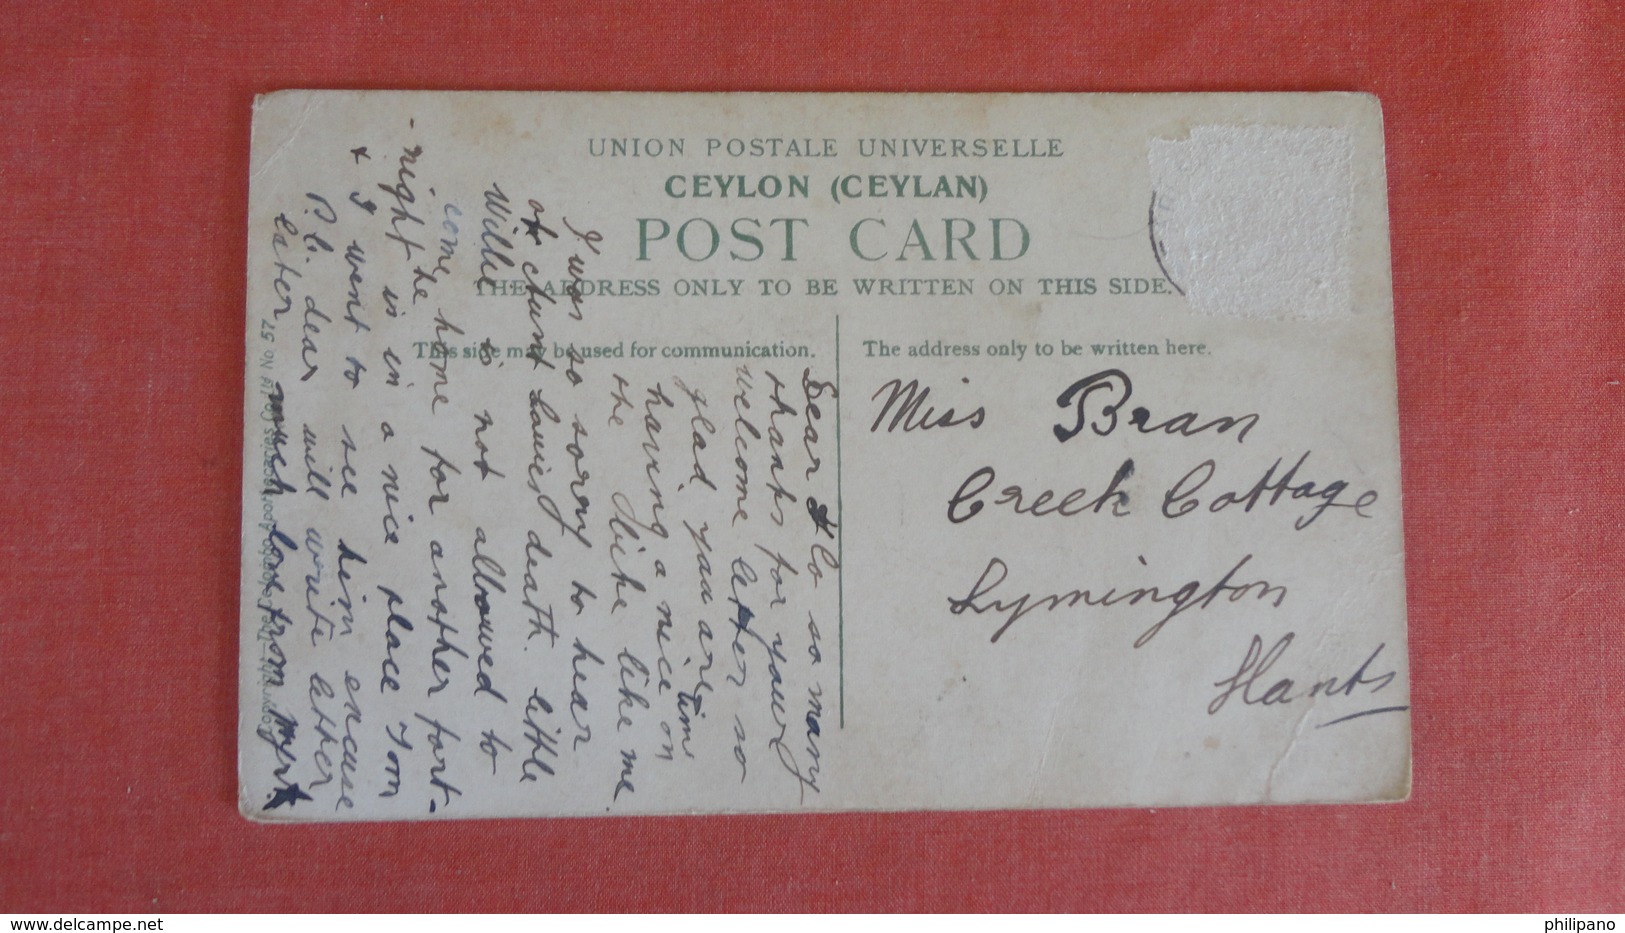 UNION POSTALE UNIVERSELLE
CEYLON (CEYLAN)
POST CARD
THE ADDRESS ONLY TO BE WRITTEN ON THIS SIDE.
This side may be used for communication.
The address only to be written here.
Miss Bran
Creek Cottage
Lymington
Hants
Dear Flo so many
thanks for your
welcome letter so
glad you are
having a nice time on
the bike like me.
I was so sorry to hear
of Aunt Louies death. little
Willie is not allowed to
come home for another fort-
-night he is in a nice place Tom
& I went to see him excuse
P.C. dear will write letter
later much love from Myrt
No. 57
philipano
delcampe.net